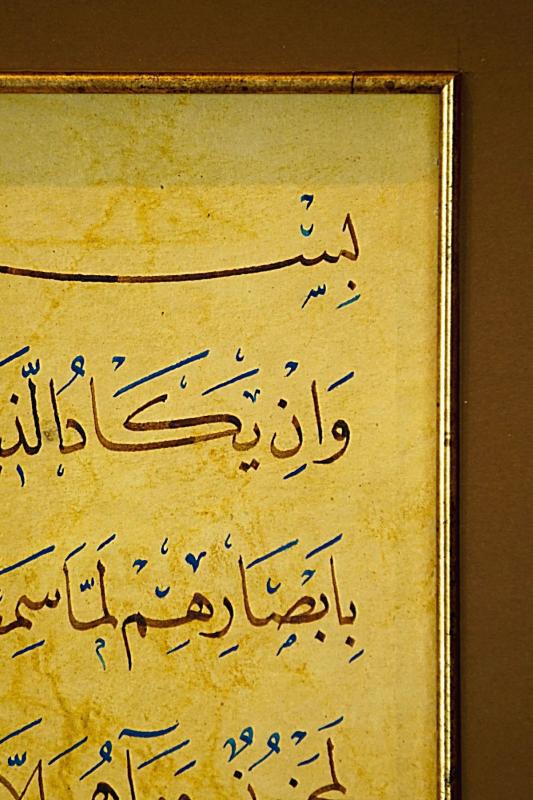 بِسْـ
وَاِنْ يَكَادُ الَّذ
بِاَبْصَارِهِمْ لَمَّا سَمِعَ
لَمَجْنُونٌ وَمَا هُوَ اِلَّا